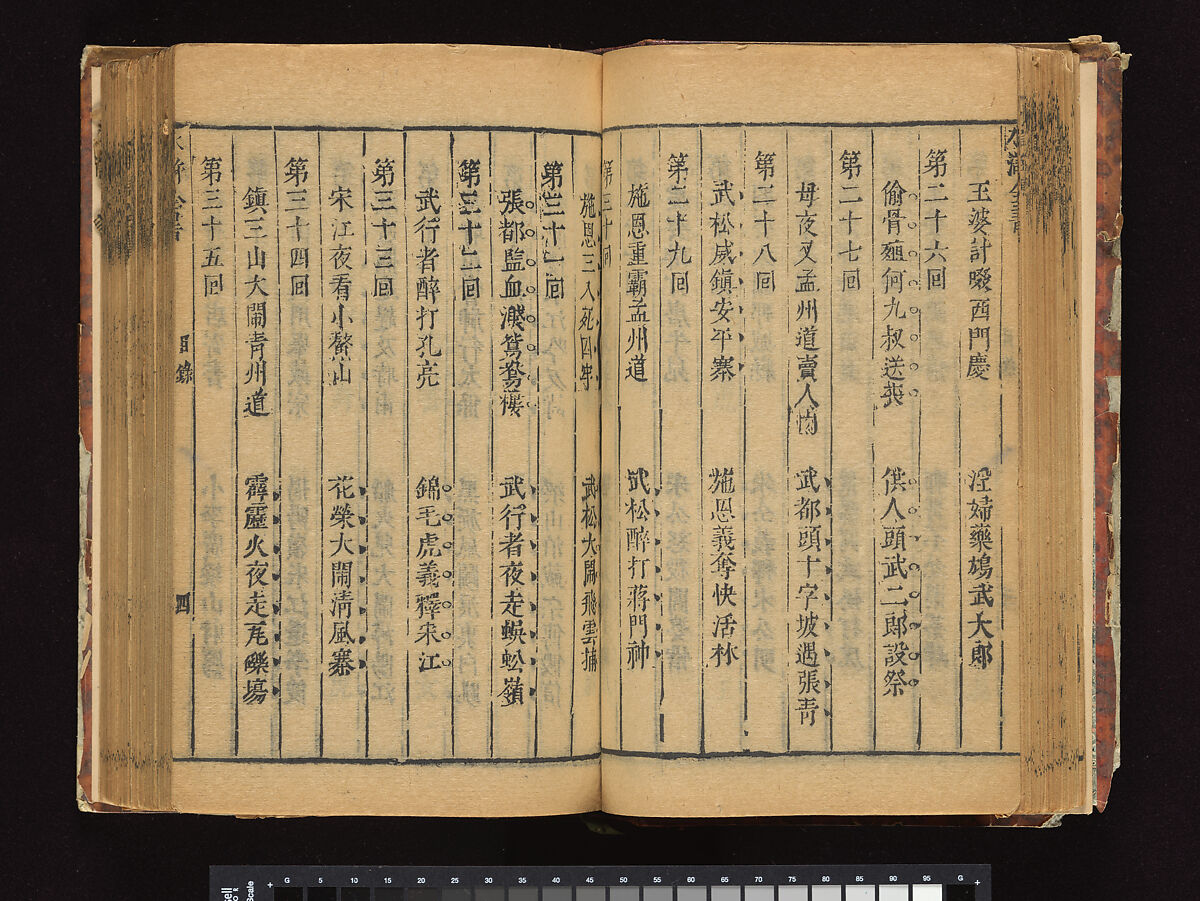 水滸全書
王婆計啜西門慶　淫婦藥鴆武大郎
第二十六回
偷骨殖何九叔送喪　供人頭武二郎設祭
第二十七回
母夜叉孟州道賣人肉　武都頭十字坡遇張青
第二十八回
武松威鎮安平寨　施恩義奪快活林
第二十九回
施恩重霸孟州道　武松醉打蔣門神
第三十回
施恩三入死囚牢　武松大鬧飛雲浦
第三十一回
張都監血濺鴛鴦樓　武行者夜走蜈蚣嶺
第三十二回
武行者醉打孔亮　錦毛虎義釋宋江
第三十三回
宋江夜看小鰲山　花榮大鬧清風寨
第三十四回
鎮三山大鬧青州道　霹靂火夜走瓦礫場
第三十五回
水滸全書　目錄　四
G 5 10 15 20 25 30 35 40 45 50 55 60 65 70 75 80 85 90 95 G
Scale